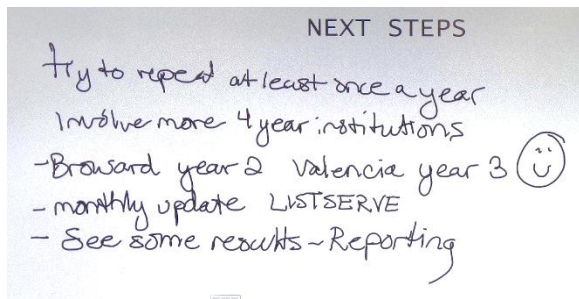 NEXT STEPS
try to repeat at least once a year
Involve more 4 year institutions
- Broward year 2 Valencia year 3
- monthly update LISTSERVE
- See some results ~ Reporting